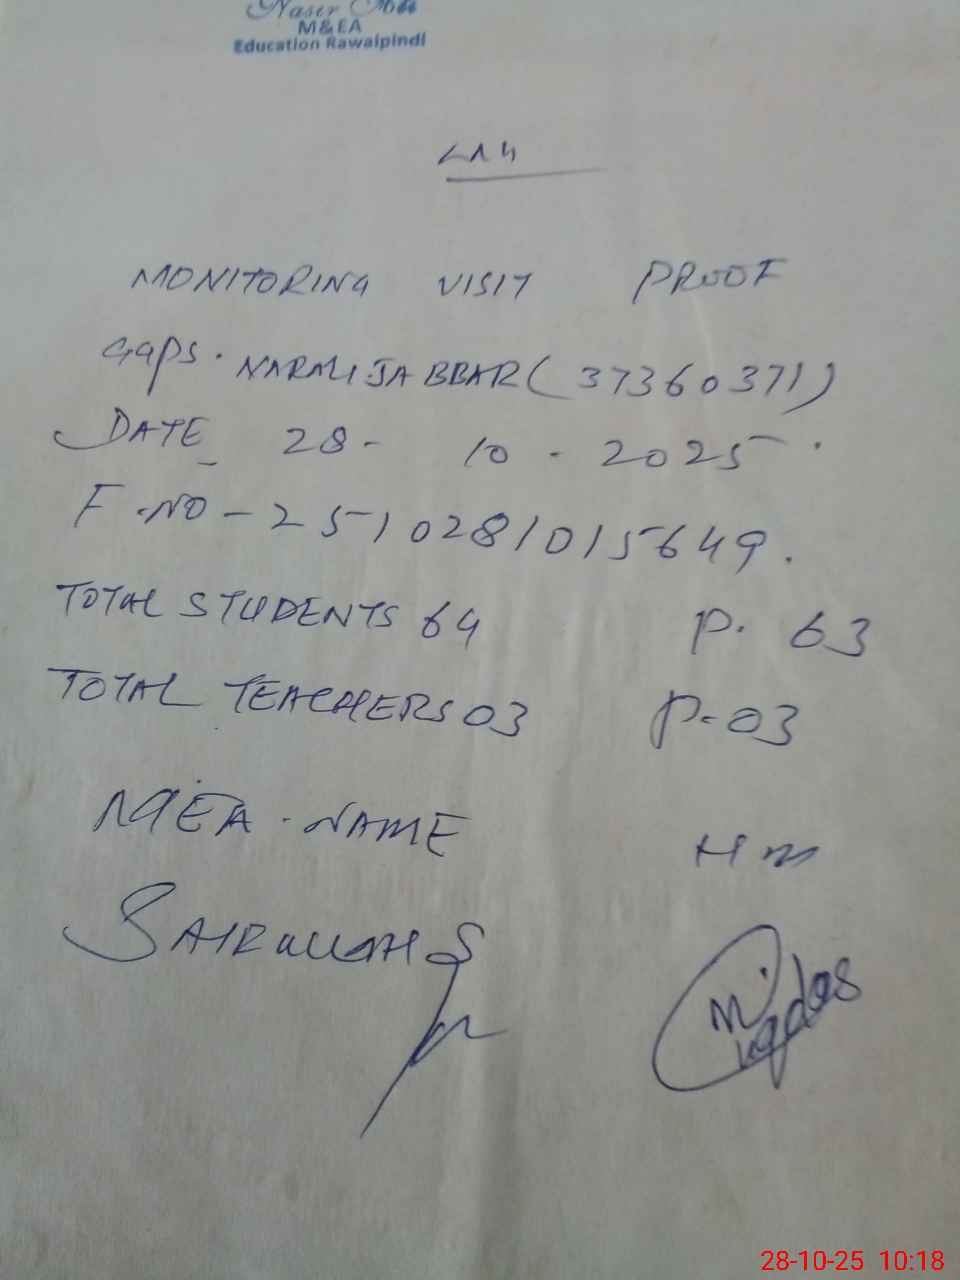 Naser
M&EA
Education Rawalpindi
MONITORING VISIT PROOF
GGPS. NARALI JABBAR (37360371)
DATE 28- 10 - 2025.
F.NO - 2510281015649.
TOTAL STUDENTS 64 P. 63
TOTAL TEACHERS 03 P-03
MEA. NAME
HM
28-10-25 10:18